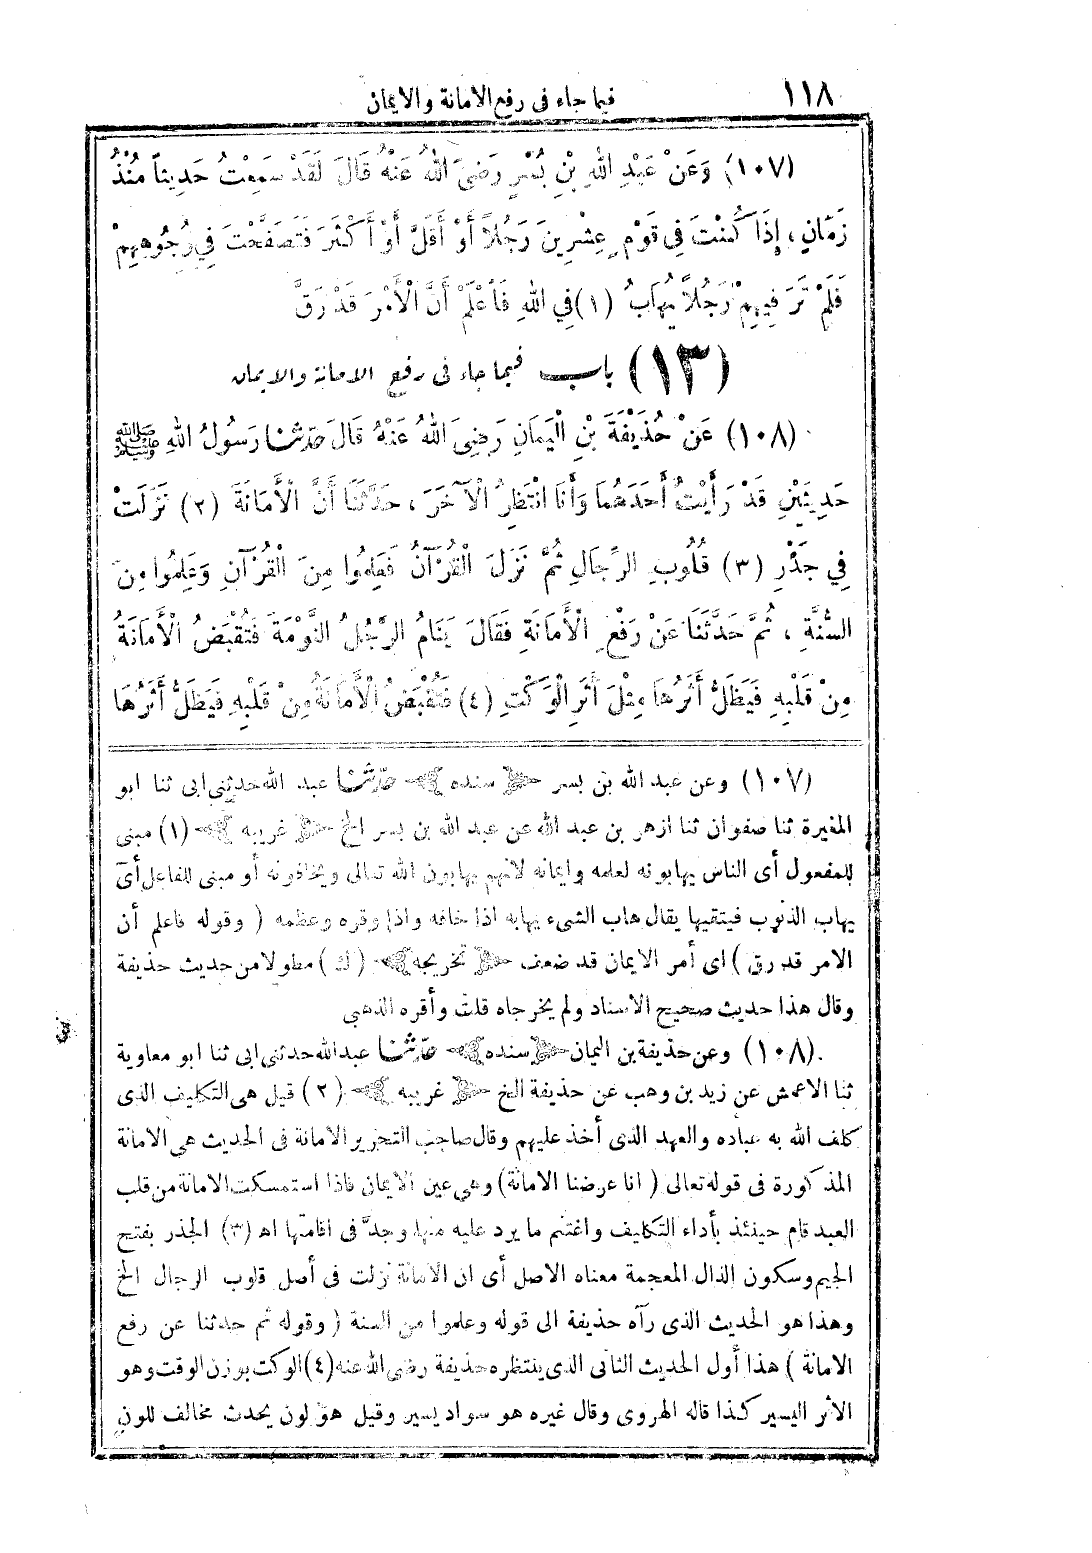 ١١٨
فيما جاء فى رفع الامانة والايمان
(١٠٧) وَعَنْ عَبْدِ اللهِ بْنِ بُسْرٍ رَضِيَ اللهُ عَنْهُ قَالَ لَقَدْ سَمِعْتُ حَدِيثاً مُنْذُ
زَمَانٍ، إِذَا كُنْتَ فِي قَوْمٍ عِشْرِينَ رَجُلاً أَوْ أَقَلَّ أَوْ أَكْثَرَ فَتَصَفَّحْتَ فِي وُجُوهِهِمْ
فَلَمْ تَرَ فِيهِمْ رَجُلاً يُهَابُ (١) فِي اللهِ فَاعْلَمْ أَنَّ الْأَمْرَ قَدْ رَقَّ
(١٣) باب فيما جاء فى رفع الامانة والايمان
(١٠٨) عَنْ حُذَيْفَةَ بْنِ الْيَمَانِ رَضِيَ اللهُ عَنْهُ قَالَ حَدَّثَنَا رَسُولُ اللهِ ﷺ
حَدِيثَيْنِ قَدْ رَأَيْتُ أَحَدَهُمَا وَأَنَا انْتَظِرُ الْآخَرَ، حَدَّثَنَا أَنَّ الْأَمَانَةَ (٢) نَزَلَتْ
فِي جَذْرِ (٣) قُلُوبِ الرِّجَالِ ثُمَّ نَزَلَ الْقُرْآنُ فَعَلِمُوا مِنَ الْقُرْآنِ وَعَلِمُوا مِنَ
السُّنَّةِ، ثُمَّ حَدَّثَنَا عَنْ رَفْعِ الْأَمَانَةِ فَقَالَ يَنَامُ الرَّجُلُ النَّوْمَةَ فَتُقْبَضُ الْأَمَانَةُ
مِنْ قَلْبِهِ فَيَظَلُّ أَثَرُهَا مِثْلَ أَثَرِ الْوَكْتِ (٤) فَتُقْبَضُ الْأَمَانَةُ مِنْ قَلْبِهِ فَيَظَلُّ أَثَرُهَا
(١٠٧) وعن عبد الله بن بسر ﴿ سنده ﴾ حدثنا عبد الله حدثنى ابى ثنا ابو
المغيرة ثنا صفوان ثنا ازهر بن عبد الله عن عبد الله بن بسر الخ ﴿ غريبه ﴾ (١) مبنى
للمفعول أى الناس يهابونه لعلمه وايمانه لانهم يهابون الله تعالى ويخافونه أو مبنى للفاعل أى
يهاب الذنوب فيتقيها يقال هاب الشىء يهابه اذا خافه واذا وقره وعظمه ( وقوله فاعلم أن
الامر قد رق ) اى أمر الايمان قد ضعف ﴿ تخريجه ﴾ ( ك ) مطولا من حديث حذيفة
وقال هذا حديث صحيح الاسناد ولم يخرجاه قلت وأقره الذهبى
(١٠٨) وعن حذيفة بن اليمان ﴿ سنده ﴾ حدثنا عبدالله حدثنى ابى ثنا ابو معاوية
ثنا الاعمش عن زيد بن وهب عن حذيفة الخ ﴿ غريبه ﴾ (٢) قيل هى التكليف الذى
كلف الله به عباده والعهد الذى أخذ عليهم وقال صاحب التحرير الامانة فى الحديث هى الامانة
المذكورة فى قوله تعالى ( انا عرضنا الامانة ) وهى عين الايمان فاذا استمسكت الامانة من قلب
العبد قام حينئذ بأداء التكليف واغتنم ما يرد عليه منها وجدَّ فى اقامتها اه (٣) الجذر بفتح
الجيم وسكون الذال المعجمة معناه الاصل أى ان الامانة نزلت فى أصل قلوب الرجال الخ
وهذا هو الحديث الذى رآه حذيفة الى قوله وعلموا من السنة ( وقوله ثم حدثنا عن رفع
الامانة ) هذا أول الحديث الثانى الذى ينتظره حذيفة رضى الله عنه (٤) الوكت بوزن الوقت وهو
الأثر اليسير كذا قاله الهروى وقال غيره هو سواد يسير وقيل هو لون يحدث مخالف للون